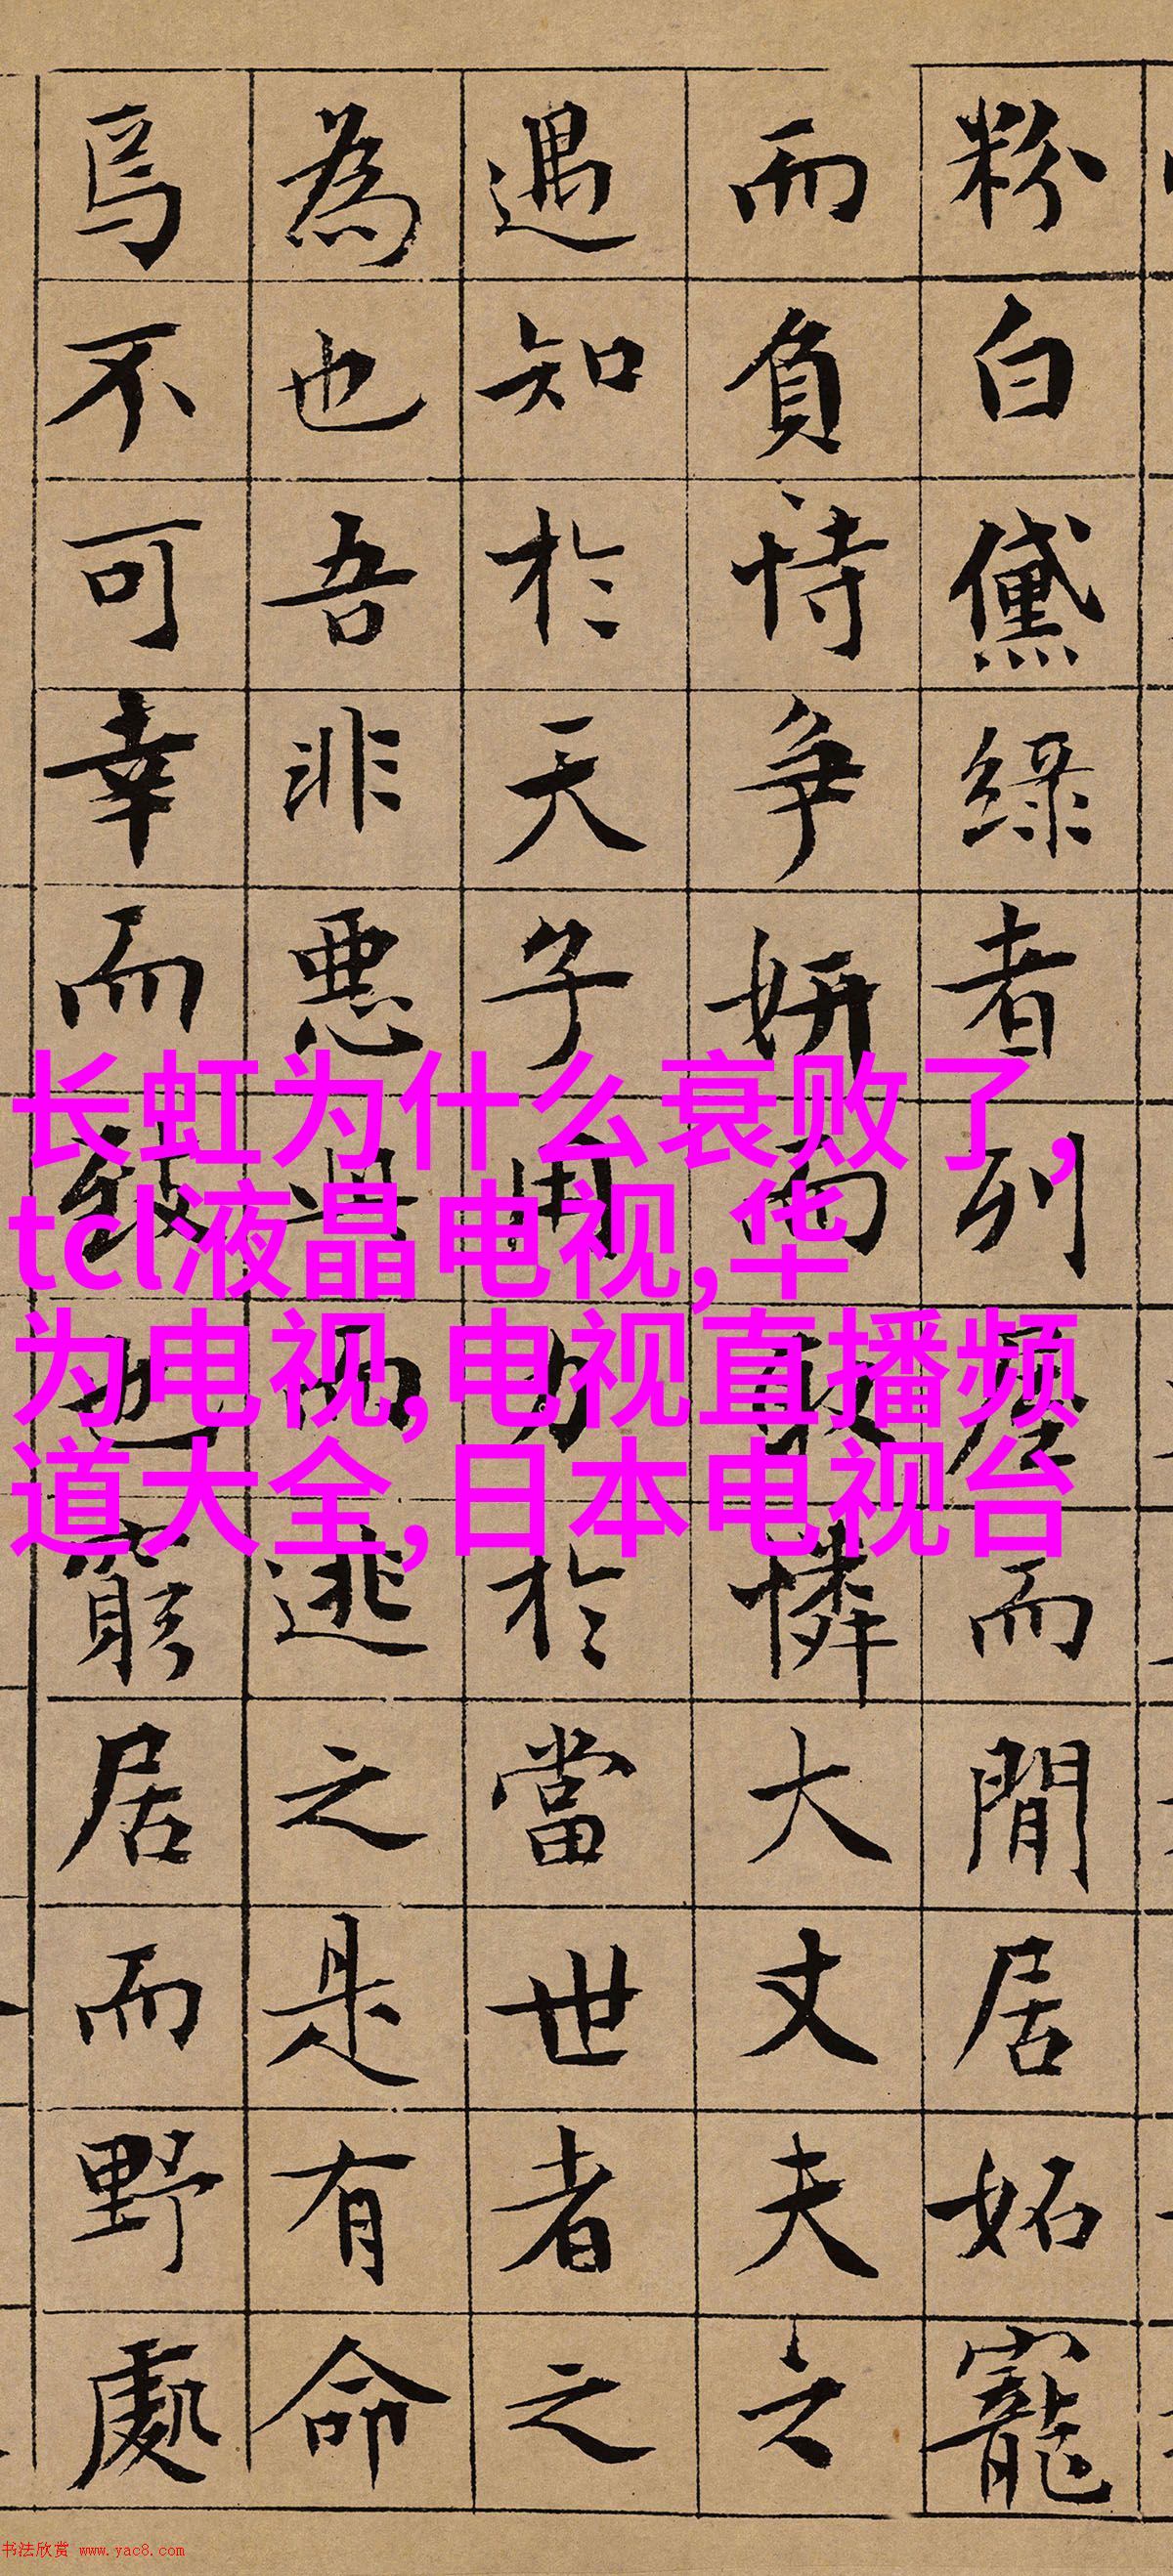 粉白黛綠者列屋而閒居妬寵
而負恃争妍而取憐大丈夫之
遇知於天子用力於當世者之
為也吾非惡此而逃之是有命
焉不可幸而致也窮居而野處
长虹为什么衰败了,
tcl液晶电视,华
为电视,电视直播频
道大全,日本电视台
书法欣赏 www.yac8.com